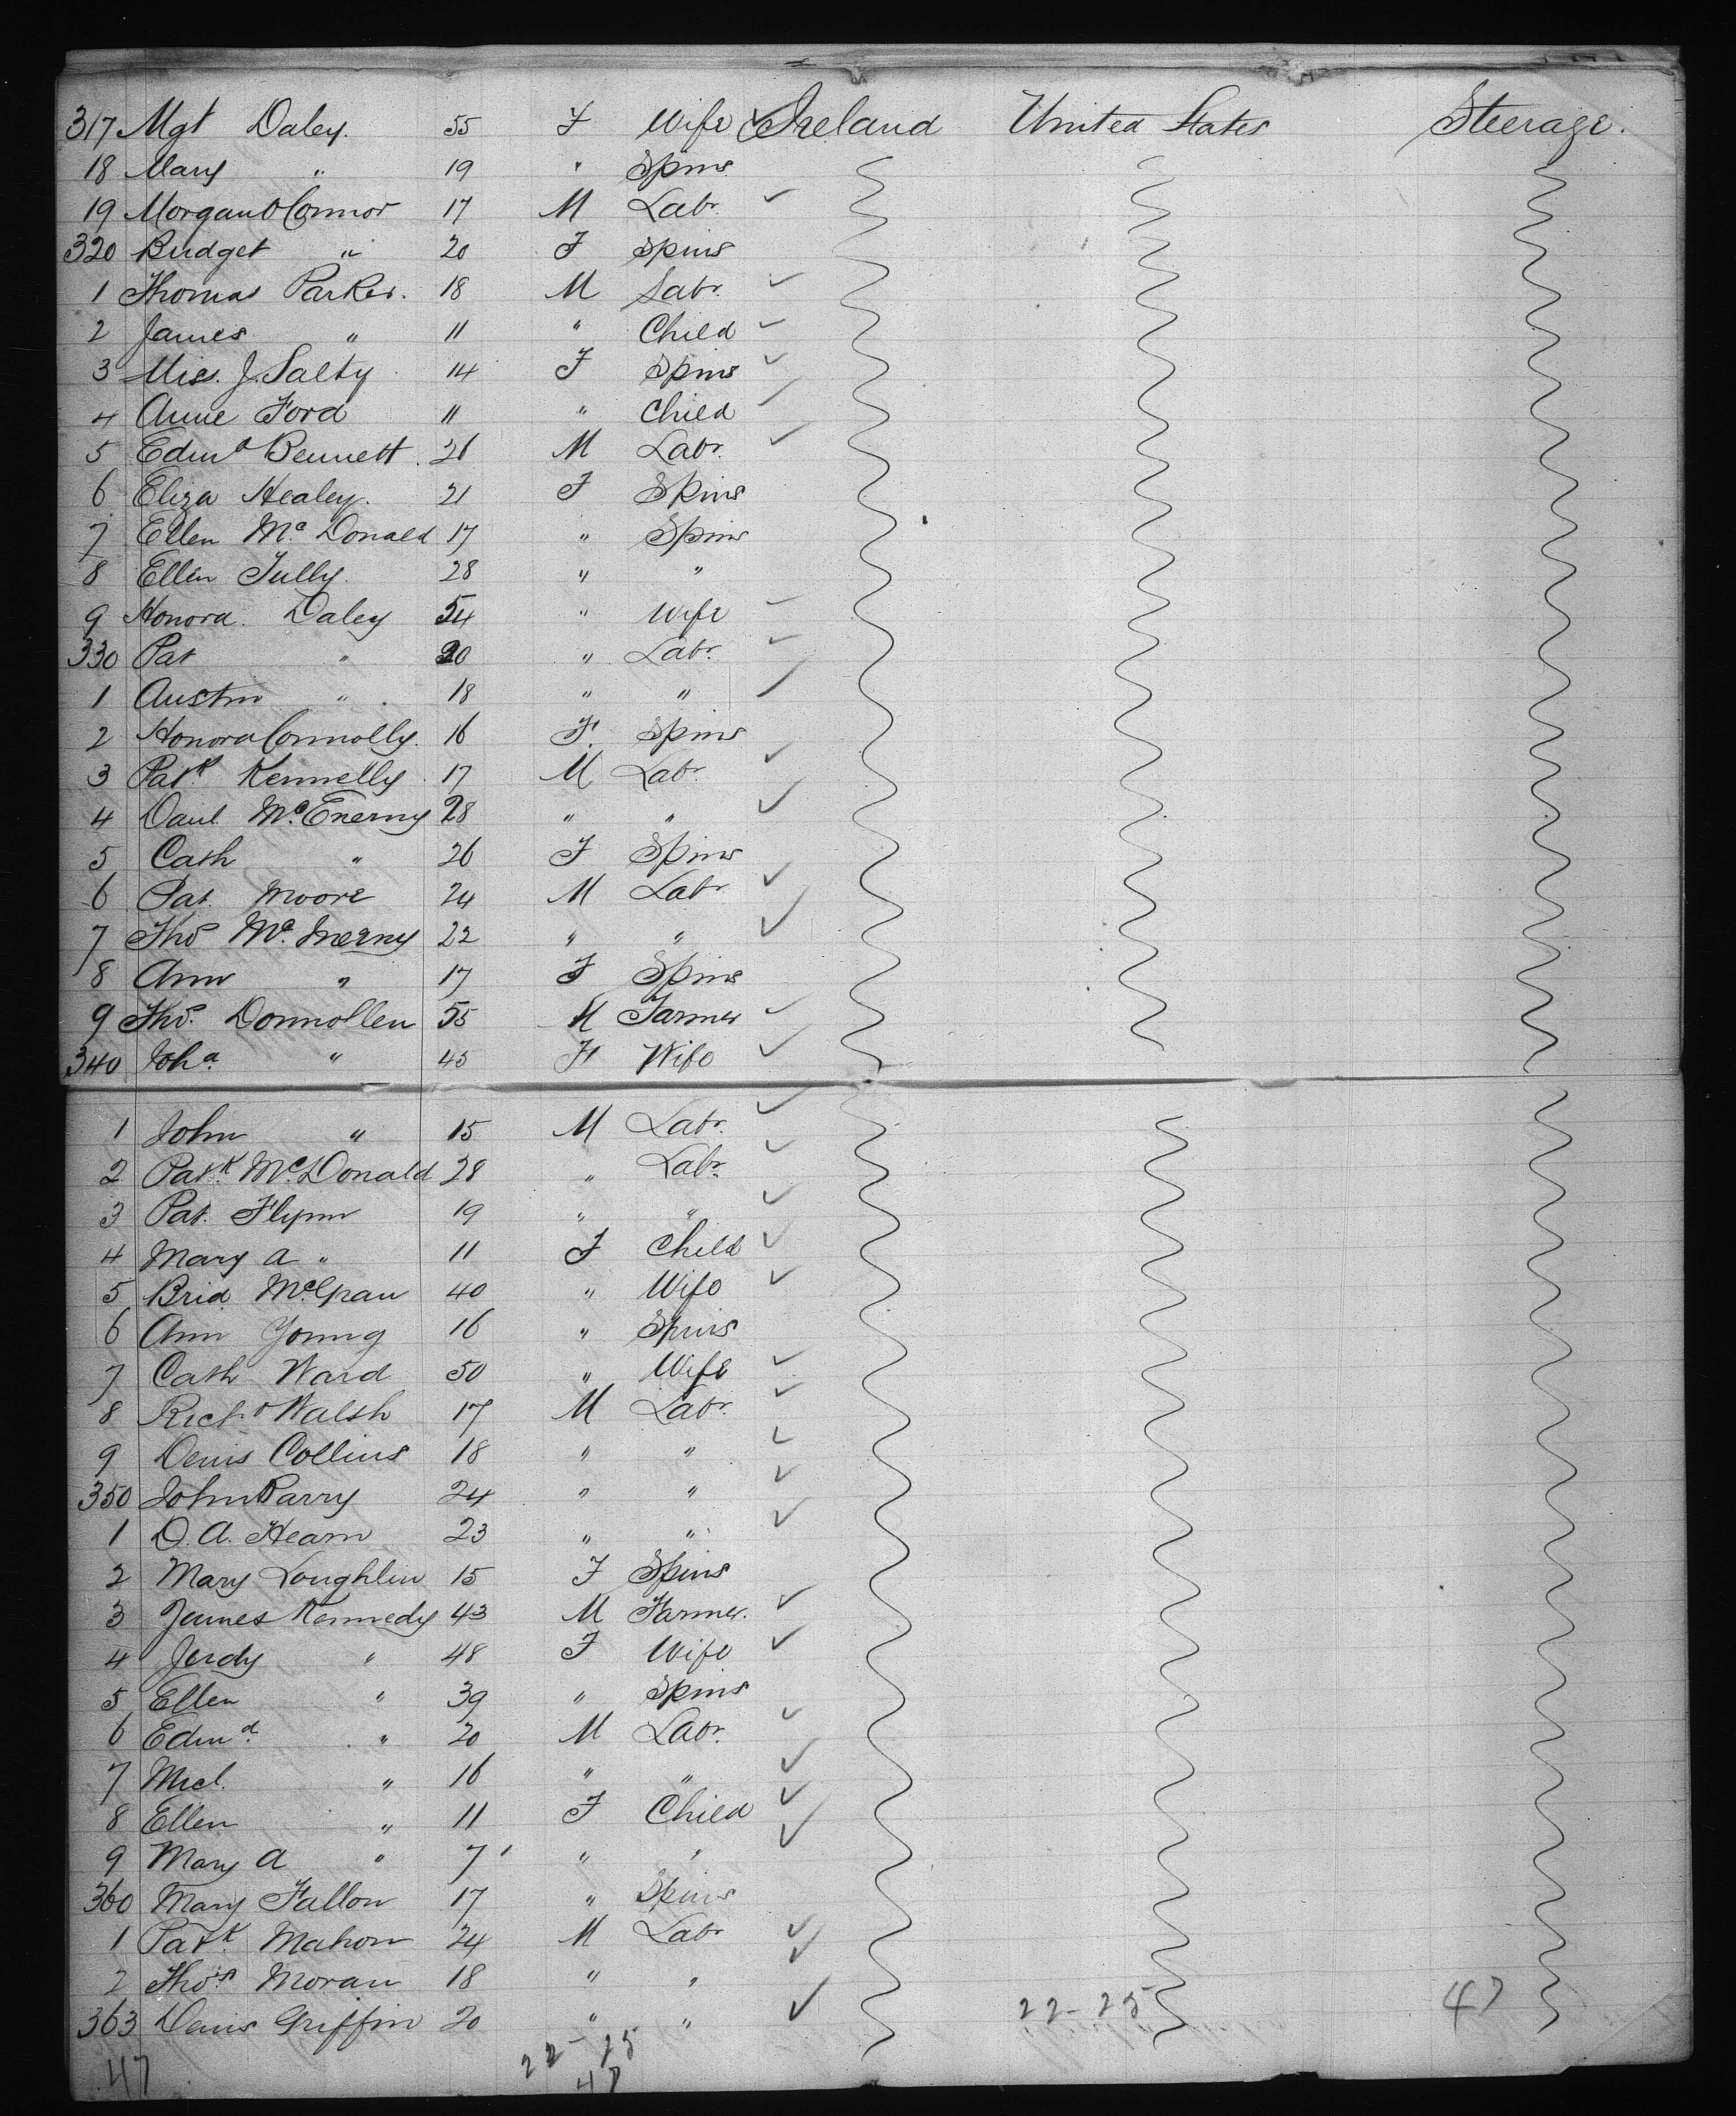 317 Mgt Daley. 55 F Wife ✓ Ireland United States Steerage.
18 Mary " 19 " Spins
19 Morgan O Connor 17 M Labr. ✓
320 Bridget " 20 F Spins
1 Thomas Parker. 18 M Labr. ✓
2 James " 11 " Child ✓
3 Miss. J. Salty 14 F Spins ✓
4 Anne Ford 11 " Child ✓
5 Edwd Bennett. 26 M Labr. ✓
6 Eliza Healey. 21 F Spins
7 Ellen Mc Donald 17 " Spins
8 Ellen Tully. 28 " "
9 Honora. Daley 54 " Wife ✓
330 Pat " 20 " Labr. ✓
1 Austin " 18 " " ✓
2 Honora Connolly. 16 F. Spins
3 Patk Kennelly 17 M Labr. ✓
4 Danl. McEnerny 28 " " ✓
5 Cath " 26 F Spins
6 Pat. Moore 24 M Labr ✓
7 Thos Mc. Inerny 22 " " ✓
8 Ann " 17 F Spins
9 Thos. Donnollen 55 M Farmer ✓
340 Joha. " 45 F Wife ✓
1 John " 15 M Labr. ✓
2 Patk. McDonald 28 " Labr. ✓
3 Pat. Flynn 19 " " ✓
4 Mary A " 11 F Child ✓
5 Brid. McGrau 40 " Wife ✓
6 Ann Young 16 " Spins
7 Cath Ward 50 " Wife ✓
8 Richd Walsh 17 M Labr. ✓
9 Denis Collins 18 " " ✓
350 John Barry 24 " " ✓
1 D. A. Hearn 23 " " ✓
2 Mary Loughlin 15 F Spins
3 James Kennedy 43 M Farmer. ✓
4 Jordy " 48 F Wife ✓
5 Ellen " 39 " Spins
6 Edmd. " 20 M Labr. ✓
7 Micl. " 16 " " ✓
8 Ellen " 11 F Child ✓
9 Mary A " 7 " " ✓
360 Mary Fallon 17 " Spins
1 Patk. Mahon 24 M Labr ✓
2 Thos Moran 18 " " ✓
363 Denis Griffin 20 " " ✓ 22-25 47
22-25
47 47